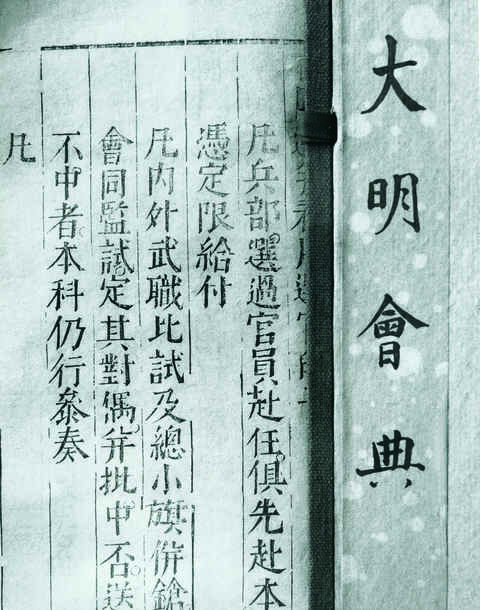 大明會典
凡兵部選過官員赴任俱先赴本
憑定限給付
凡内外武職比試及總小旗併鎗
會同監試定其對偶并批中否送
不中者本科仍行叅奏
凡